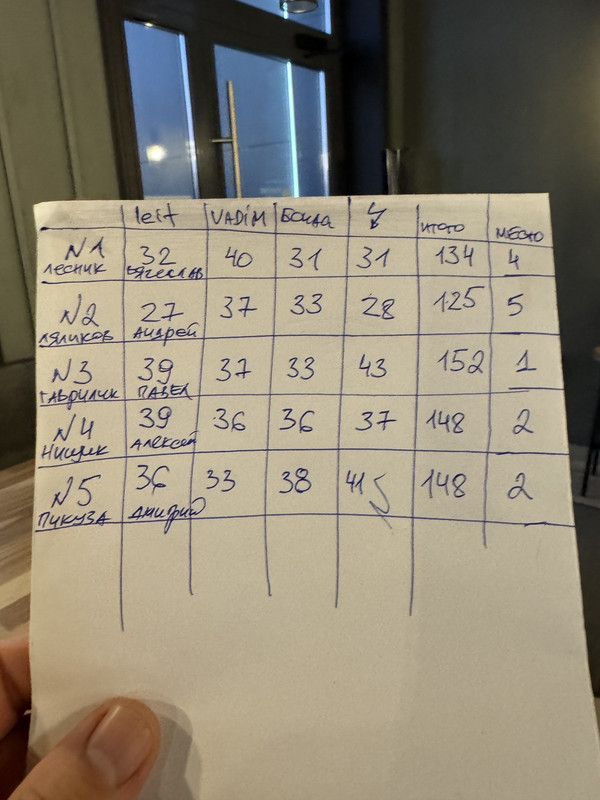 leit VADIM Бонда Итого место
N1 32 40 31 31 134 4
лесник Вячеслав
N2 27 37 33 28 125 5
ляликов Андрей
N3 39 37 33 43 152 1
Гаврилик ПАВЕЛ
N4 39 36 36 37 148 2
Нищик Алексей
N5 36 33 38 41 148 2
ПИКУЗА Дмитрий